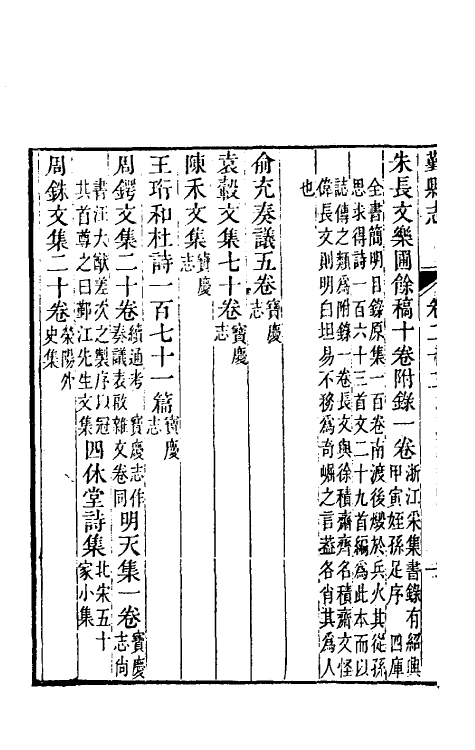 鄞縣志 卷二十五
朱長文樂圃餘稿十卷附錄一卷 浙江采集書錄有紹興甲寅姪孫足序 四庫
全書簡明目錄原集一百卷南渡後燬於兵火其從孫
思求得詩一百六十三首文二十九首編爲此本而以
誌傳之類爲附錄一卷長文與徐積齋齊名積齋文怪
偉長文則明白坦易不務爲奇崛之言葢各肖其爲人
也
俞充奏議五卷 寶慶志
袁轂文集七十卷 寶慶志
陳禾文集 寶慶志
王珩和杜詩一百七十一篇 寶慶志
周鍔文集二十卷 續通考 寶慶志作奏議表啟雜文卷同 明天集一卷 寶慶志尚
書汪大猷差次之製序以冠其首尊之曰鄞江先生文集 四休堂詩集 北宋五十家小集
周銖文集二十卷 滎陽外史集